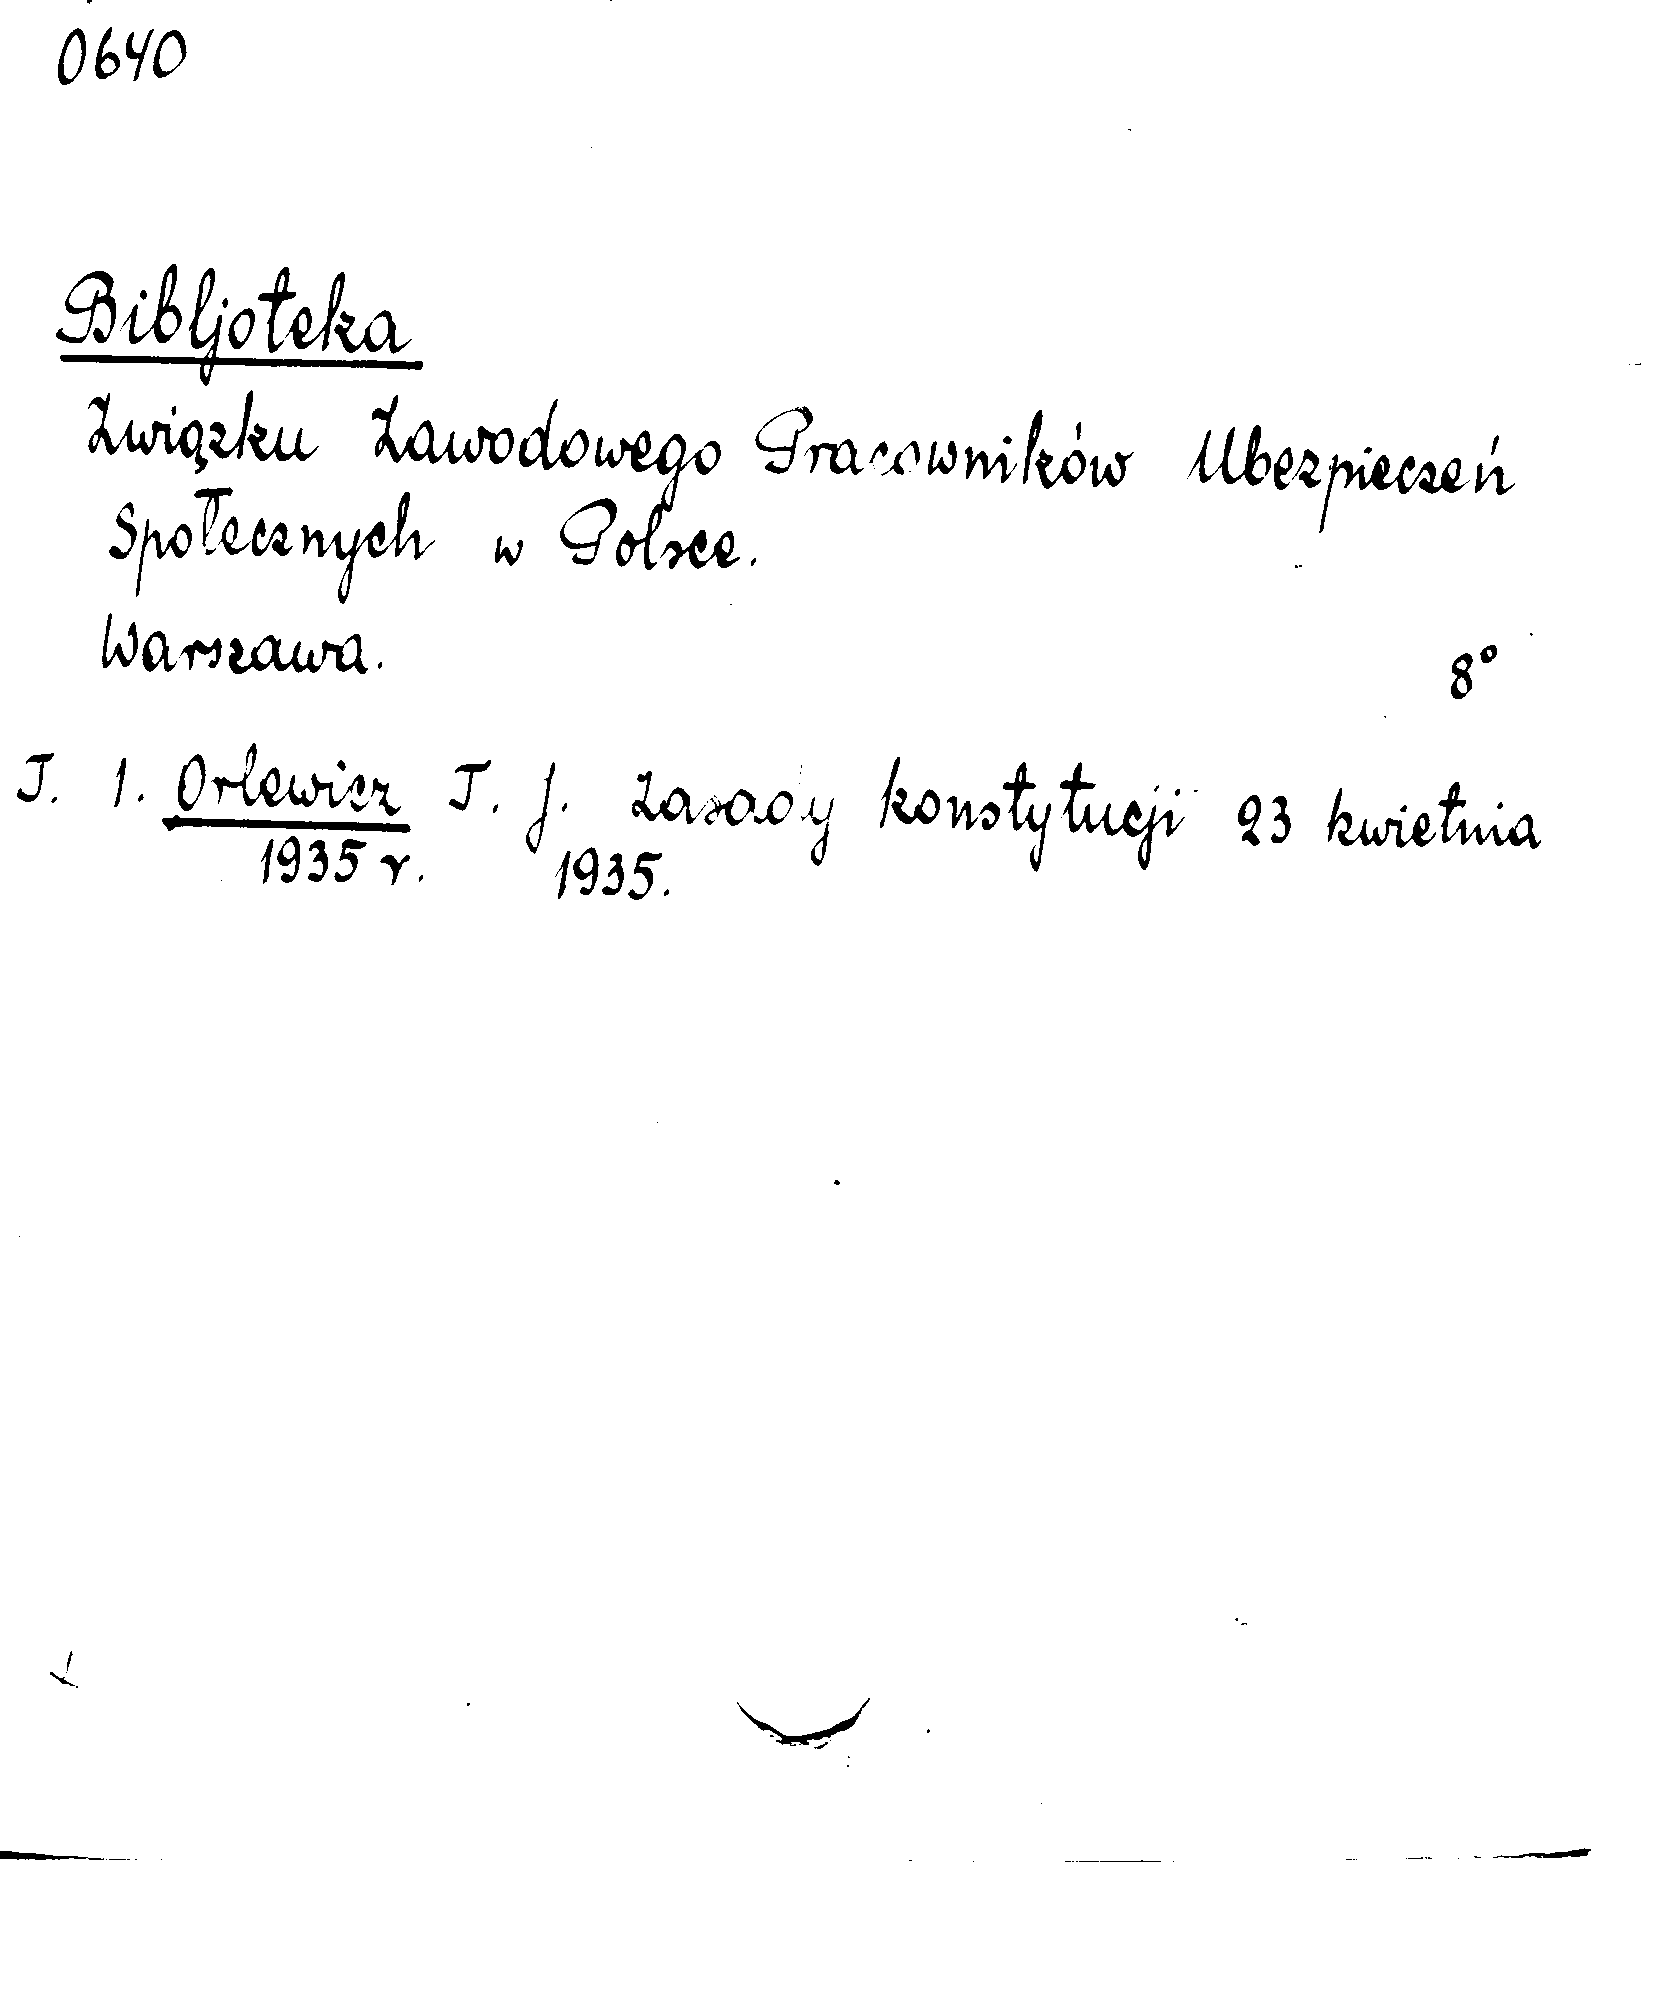 0640
Bibljoteka
Związku Zawodowego Pracowników Ubezpieczeń
Społecznych w Polsce.
Warszawa. 8°
T. 1. Orlewicz T. J. Zasady konstytucji 23 kwietnia
1935 r. 1935.